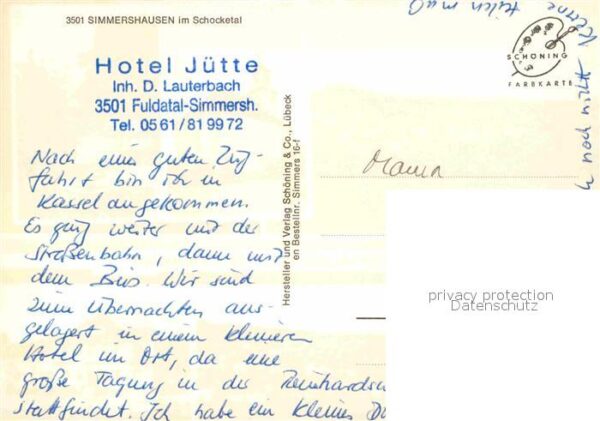 3501 SIMMERSHAUSEN im Schocketal
Hotel Jütte
Inh. D. Lauterbach
3501 Fuldatal-Simmersh.
Tel. 05 61 / 81 99 72
Nach einer guten Zug-
fahrt bin ich in
Kassel angekommen.
Es ging weiter mit der
Straßenbahn, dann mit
dem Bus. Wir sind
zum Übernachten aus-
gelagert in einem kleineren
Hotel im Ort, da eine
große Tagung in der Reinhardsw
stattfindet. Ich habe ein kleines D
Hersteller und Verlag Schöning & Co., Lübeck
en Bestellnr. Simmers 16-f
Mama
SCHÖNING
FARBKARTE
teilen muß
noch nicht
privacy protection
Datenschutz